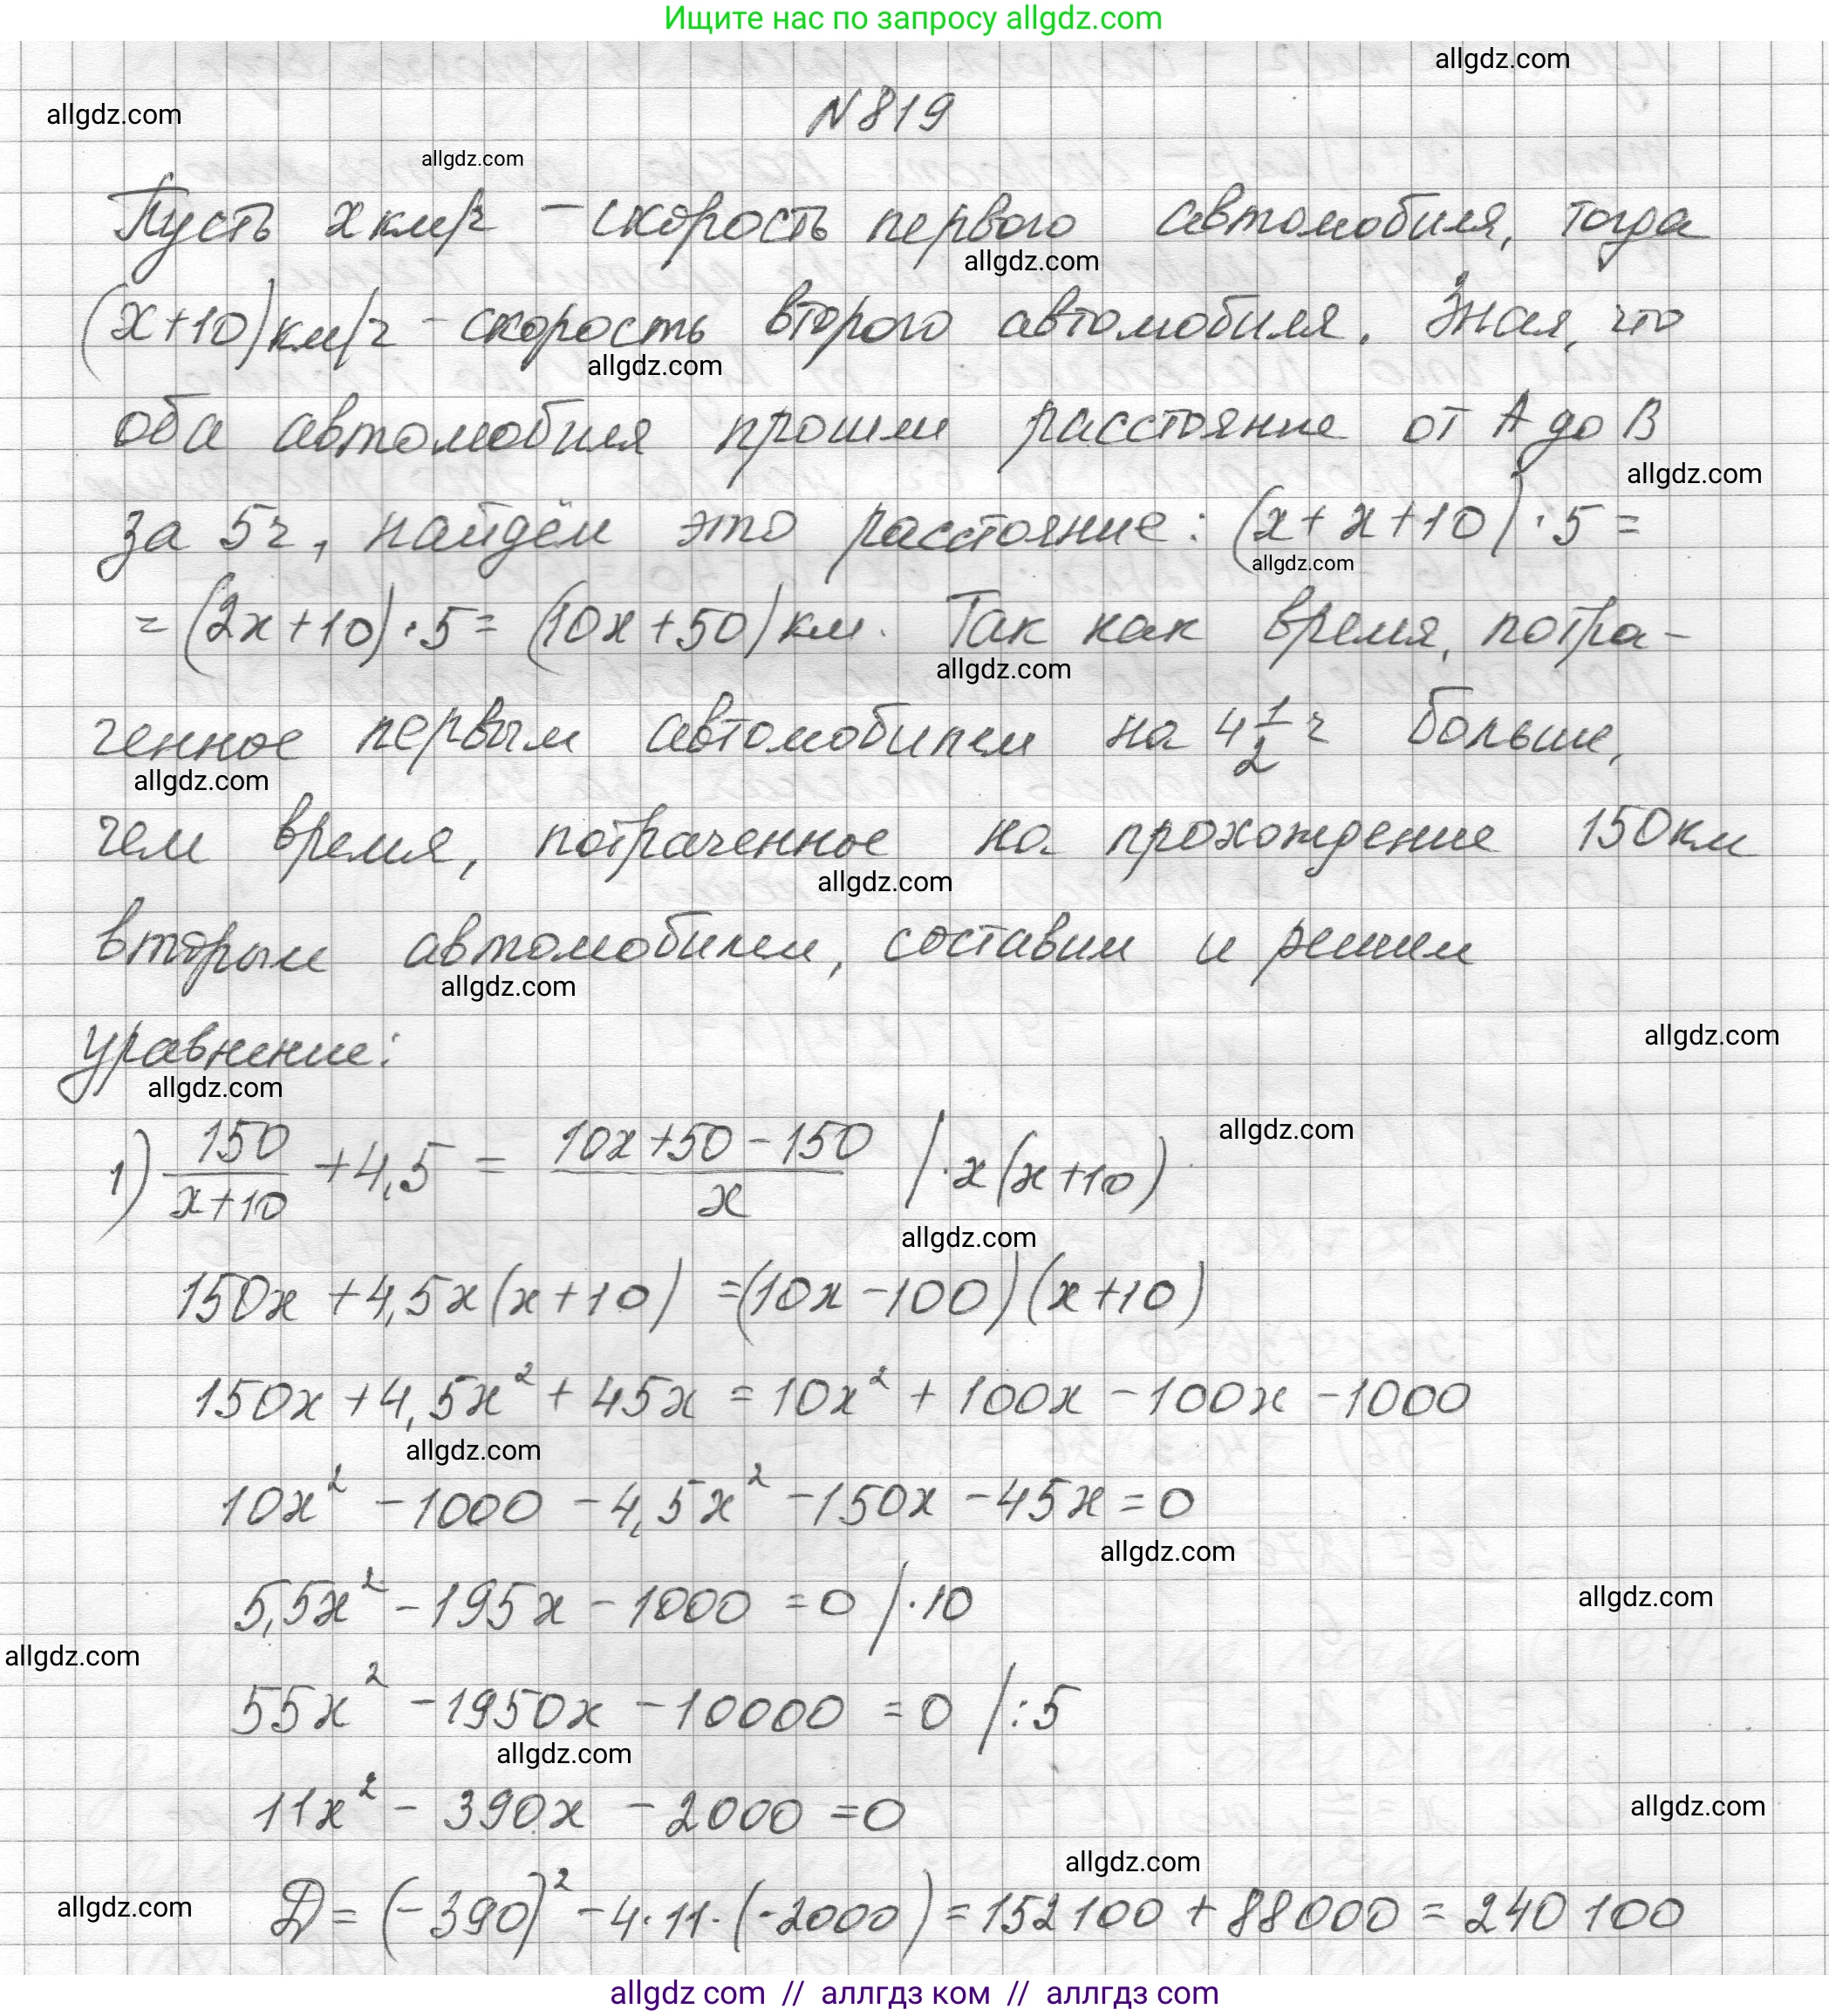 Ищите нас по запросу allgdz.com
allgdz.com
allgdz.com
№819
allgdz.com
Пусть x км/ч – скорость первого автомобиля, тогда
allgdz.com
(x+10) км/ч – скорость второго автомобиля. Зная, что
allgdz.com
оба автомобиля прошли расстояние от A до B
allgdz.com
за 5ч, найдём это расстояние: (x+x+10)·5=
allgdz.com
=(2x+10)·5=(10x+50) км. Так как время, потра-
allgdz.com
ченное первым автомобилем на 4 1/2 ч больше,
allgdz.com
чем время, потраченное на прохождение 150км
allgdz.com
вторым автомобилем, составим и решим
allgdz.com
уравнение:
allgdz.com
allgdz.com
1) 150/(x+10) +4,5 = (10x+50-150)/x /·x(x+10)
allgdz.com
allgdz.com
150x +4,5x(x+10) =(10x-100)(x+10)
150x+4,5x² + 45x = 10x² + 100x - 100x - 1000
allgdz.com
10x² - 1000 - 4,5x² - 150x - 45x = 0
allgdz.com
5,5x² - 195x - 1000 = 0 /·10
allgdz.com
allgdz.com
55x² - 1950x - 10000 = 0 /:5
allgdz.com
11x² - 390x - 2000 = 0
allgdz.com
allgdz.com
D = (-390)² - 4·11·(-2000) = 152100 + 88000 = 240 100
allgdz.com
allgdz com // аллгдз ком // аллгдз com